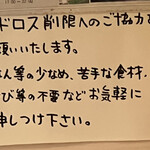 ドロス削限へのご協力を
願いいたします。
はん等の少なめ、苦手な食材、
さび等の不要などお気軽に
申しつけ下さい。